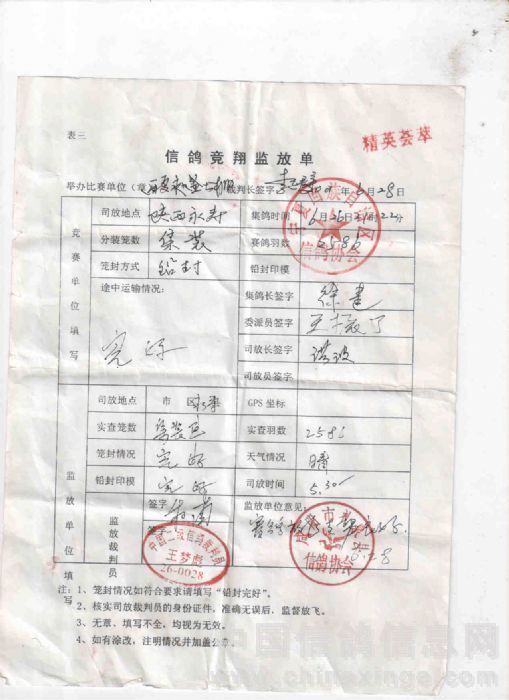 表三
精英荟萃
信鸽竞翔监放单
举办比赛单位(章 裁判长签字 年6月28日
竞赛单位填写
司放地点 陕西永寿 集鸽时间 6月26日21时22分
分装笼数 集装 赛鸽羽数 2586
笼封方式 铅封 铅封印模
途中运输情况: 完好
集鸽长签字 徐建
委派员签字
司放长签字
司放员签字
宁夏回族自治区
信鸽协会
监放单位填写
司放地点 市 区 永寿 GPS 坐标
实查笼数 集装 实查羽数 258
笼封情况 完好 天气情况 晴
铅封印模 完好 司放时间 5.30
监放裁判员
签字
签字
监放单位意见:
中国二级信鸽裁判员
王梦彪
26-0028
信鸽协会
注:1、笼封情况如符合要求请填写“铅封完好”。
2、核实司放裁判员的身份证件,准确无误后,监督放飞。
3、无章、填写不全,均视为无效。
4、如有涂改,注明情况并加盖公章。
中国信鸽信息网
www.chinaxinge.com